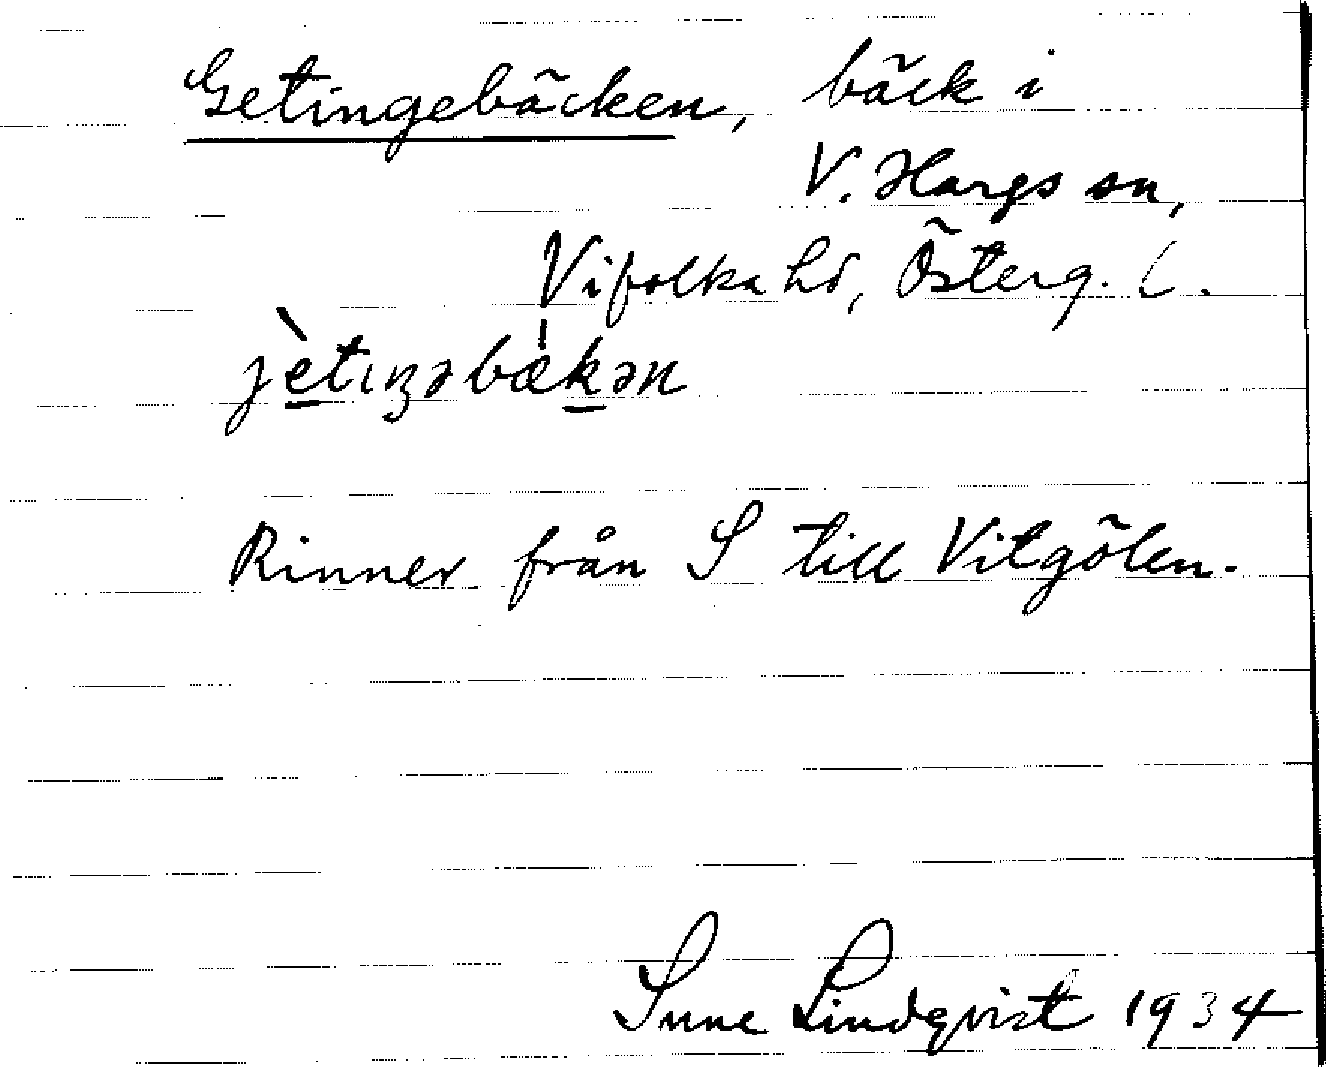 Getingebäcken, bäck i
V. Hargs sn,
Vifolka hd, Österg. l.
jètıŋəbæ̍kən
Rinner från S till Vitgölen.
Sune Lindqvist 1934